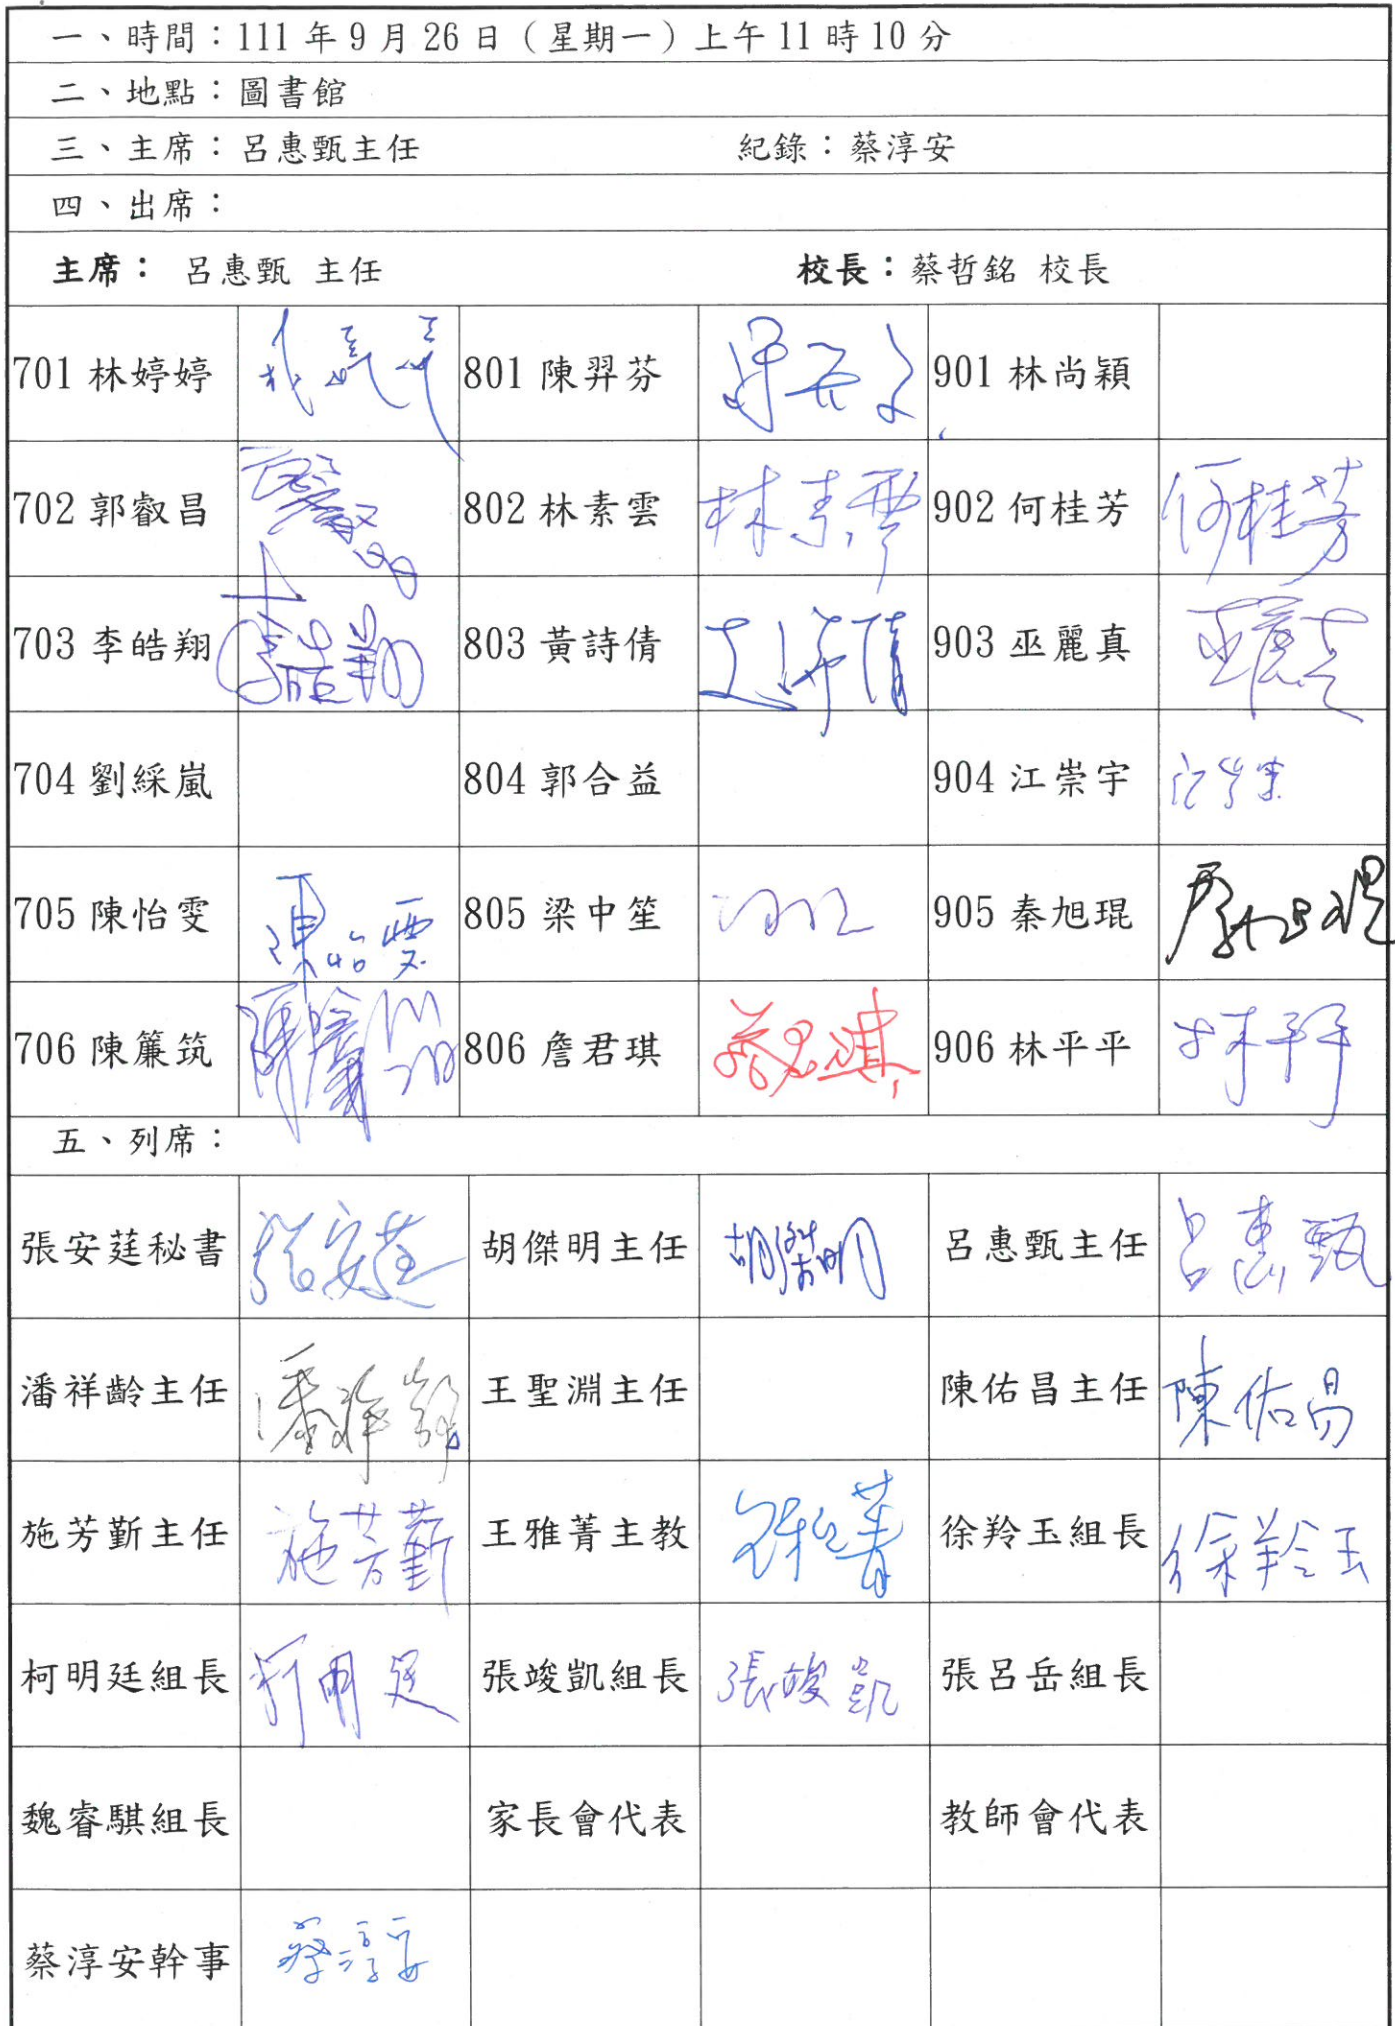 一、時間：111年9月26日（星期一）上午11時10分
二、地點：圖書館
三、主席：呂惠甄主任 紀錄：蔡淳安
四、出席：
主席： 呂惠甄 主任 校長：蔡哲銘 校長
701 林婷婷 801 陳羿芬 901 林尚穎
702 郭叡昌 802 林素雲 林素雲 902 何桂芳 何桂芳
703 李皓翔 803 黃詩倩 903 巫麗真
704 劉綵嵐 804 郭合益 904 江崇宇
705 陳怡雯 陳怡雯 805 梁中笙 905 秦旭琨
706 陳簾筑 806 詹君琪 906 林平平 林平平
五、列席：
張安莛秘書 張安莛 胡傑明主任 胡傑明 呂惠甄主任 呂惠甄
潘祥齡主任 潘祥齡 王聖淵主任 陳佑昌主任 陳佑昌
施芳斳主任 施芳斳 王雅菁主教 徐羚玉組長 徐羚玉
柯明廷組長 柯明廷 張竣凱組長 張竣凱 張呂岳組長
魏睿騏組長 家長會代表 教師會代表
蔡淳安幹事 蔡淳安